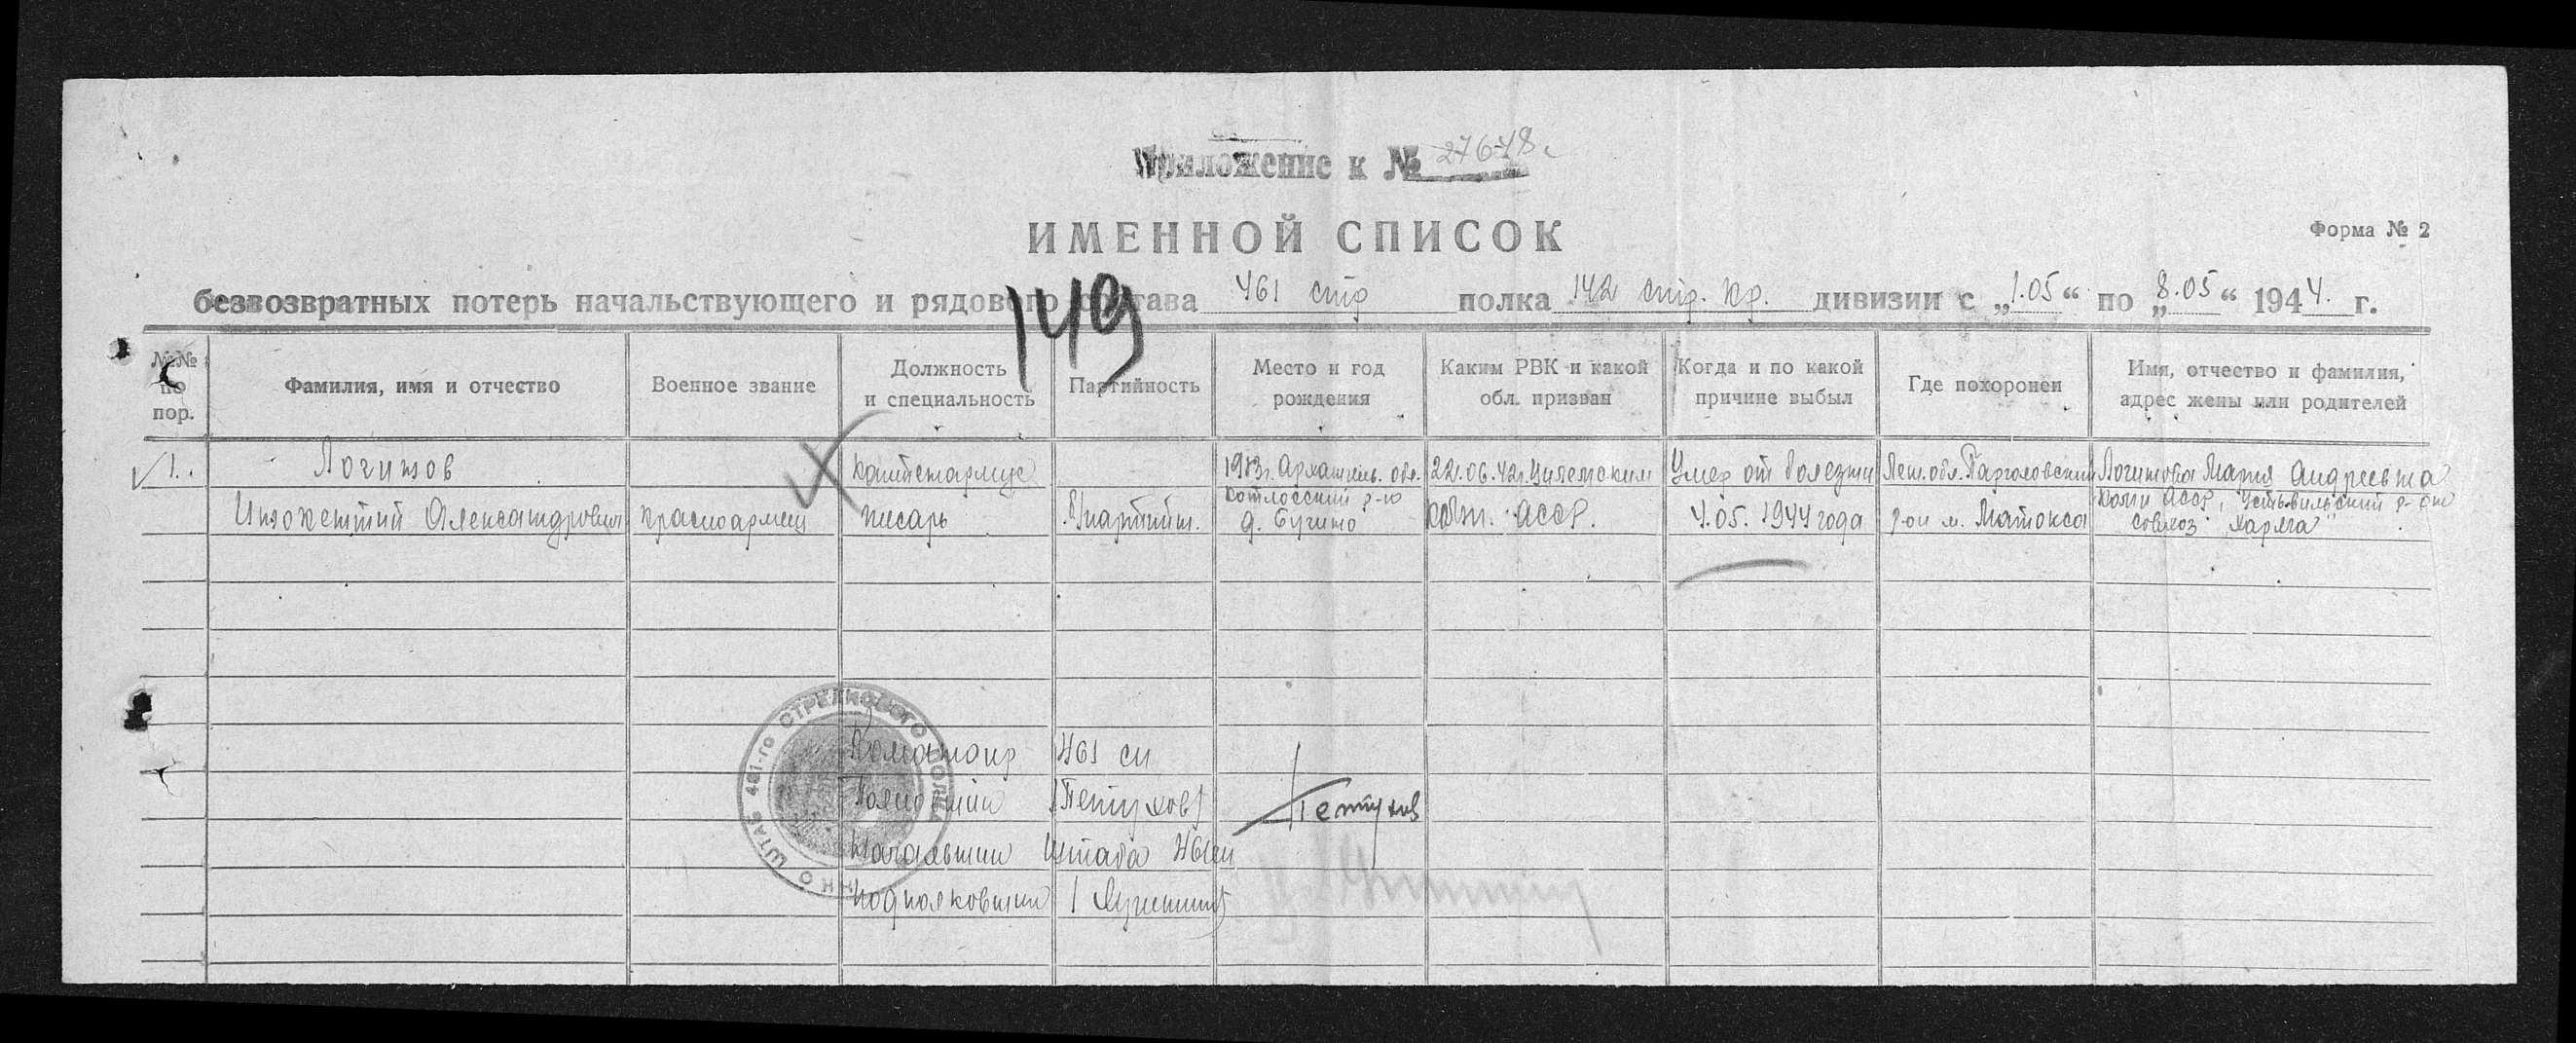 Приложение к № 27678с
ИМЕННОЙ СПИСОК
Форма № 2
безвозвратных потерь начальствующего и рядового состава 461 стр полка 142 стр. Кр. дивизии с „1.05“ по „8.05“ 1944. г.
149
№№ по пор.
Фамилия, имя и отчество
Военное звание
Должность и специальность
Партийность
Место и год рождения
Каким РВК и какой обл. призван
Когда и по какой причине выбыл
Где похоронен
Имя, отчество и фамилия, адрес жены или родителей
1.
Логинов
Иннокентий Александрович
красноармеец
писарь
б/партийн.
1913г. Архангель. обл.
Котласский р-н
д. Бугино
22.06.42г.
АССР.
Умер от болезни
4.05.1944 года
Лен. обл. Парголовский
р-он м. Матокса
Логинова Мария Андреевна
Коми АССР, Устьвымьский р-он
совхоз
Командир 461 сп
Полковник /Петухов/
Петухов
Начальник Штаба 461сп
Подполковник
ШТАБ 461-го СТРЕЛКОВОГО ПОЛКА
НКО